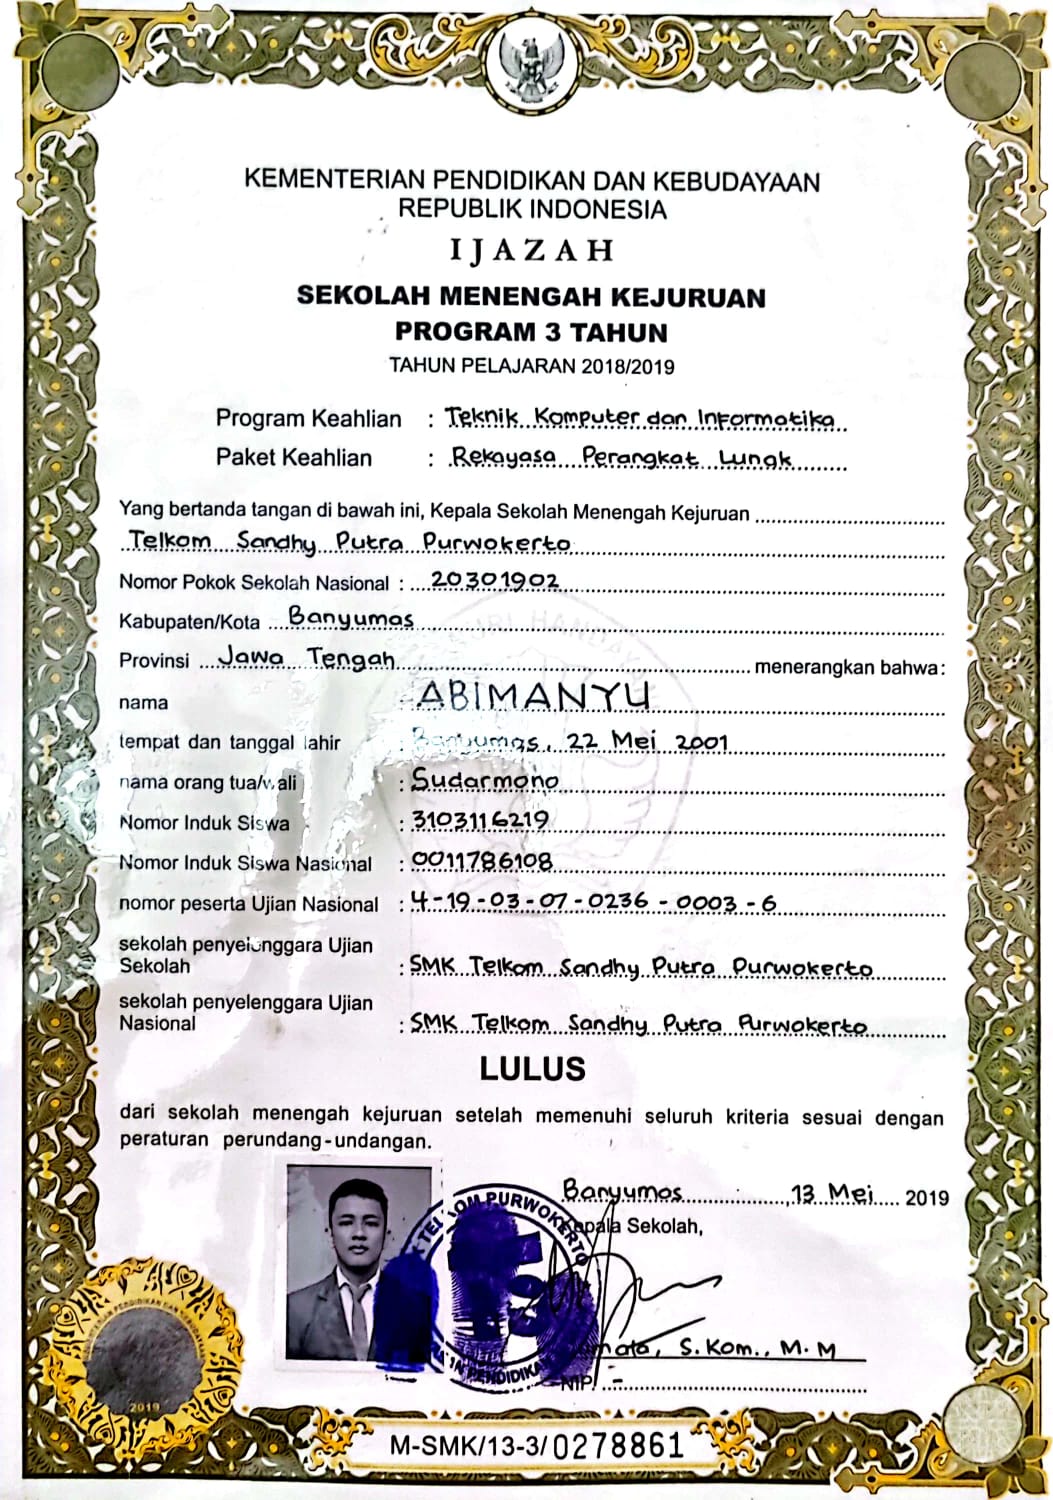 KEMENTERIAN PENDIDIKAN DAN KEBUDAYAAN
REPUBLIK INDONESIA
IJAZAH
SEKOLAH MENENGAH KEJURUAN
PROGRAM 3 TAHUN
TAHUN PELAJARAN 2018/2019
Program Keahlian : Teknik Komputer dan Informatika
Paket Keahlian : Rekayasa Perangkat Lunak
Yang bertanda tangan di bawah ini, Kepala Sekolah Menengah Kejuruan
Telkom Sandhy Putra Purwokerto
Nomor Pokok Sekolah Nasional : 20301902
Kabupaten/Kota Banyumas
Provinsi Jawa Tengah menerangkan bahwa:
nama : ABIMANYU
tempat dan tanggal lahir : Banyumas, 22 Mei 2001
nama orang tua/wali : Sudarmono
Nomor Induk Siswa : 3103116219
Nomor Induk Siswa Nasional : 0011786108
nomor peserta Ujian Nasional : 4-19-03-07-0236-0003-6
sekolah penyelenggara Ujian
Sekolah : SMK Telkom Sandhy Putra Purwokerto
sekolah penyelenggara Ujian
Nasional : SMK Telkom Sandhy Putra Purwokerto
LULUS
dari sekolah menengah kejuruan setelah memenuhi seluruh kriteria sesuai dengan
peraturan perundang-undangan.
Banyumas, 13 Mei 2019
Kepala Sekolah,
S.Kom., M.M
NIP. -
TELKOM PURWOKERTO
2019
M-SMK/13-3/0278861